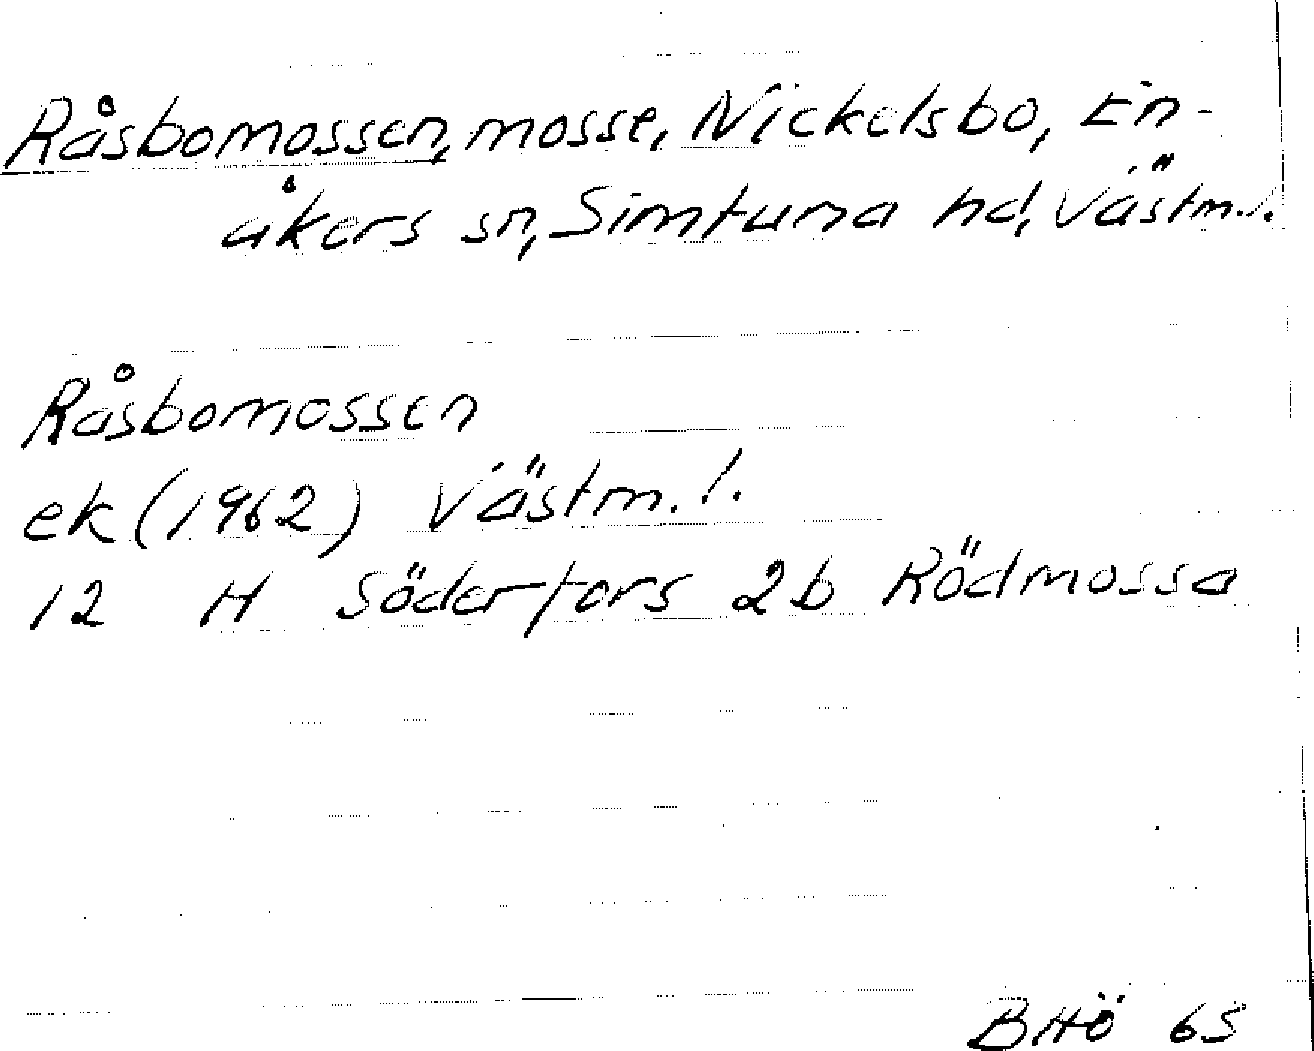 Råsbomossen, mosse, Nickelsbo, En-
åkers sn, Simtuna hd, Västm. l.
Råsbomossen
ek (1962) Västm. l.
12 H Söderfors 2b Rödmossa
BHÖ 65